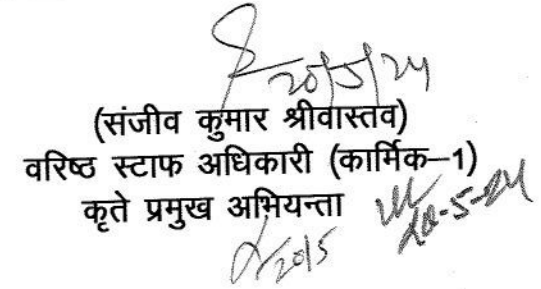 20/5/24
(संजीव कुमार श्रीवास्तव)
वरिष्ठ स्टाफ अधिकारी (कार्मिक–1)
कृते प्रमुख अभियन्ता
20-5-24
20/5